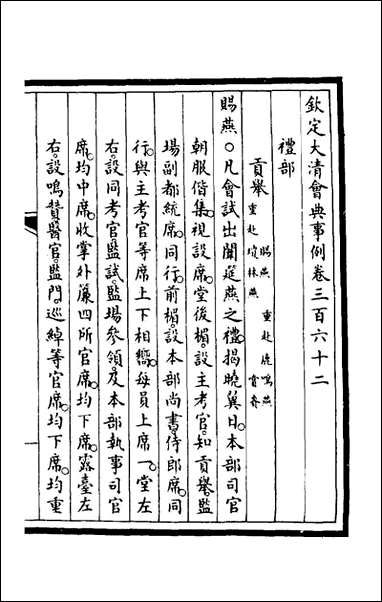 欽定大清會典事例卷三百六十二
禮部
貢舉 賜燕 重赴鹿鳴燕
重赴瓊林燕 賞賚
賜燕○凡會試出闈筵燕之禮揭曉翼日本部司官
朝服偕集視設席堂後楣設主考官知貢舉監
場副都統席同行前楣設本部尚書侍郎席同
行與主考官等席上下相嚮每員上席一堂左
右設同考官監試監場參領及本部執事司官
席均中席收掌外簾四所官席均下席露臺左
右設鳴贊醫官監門巡綽等官席均下席均重